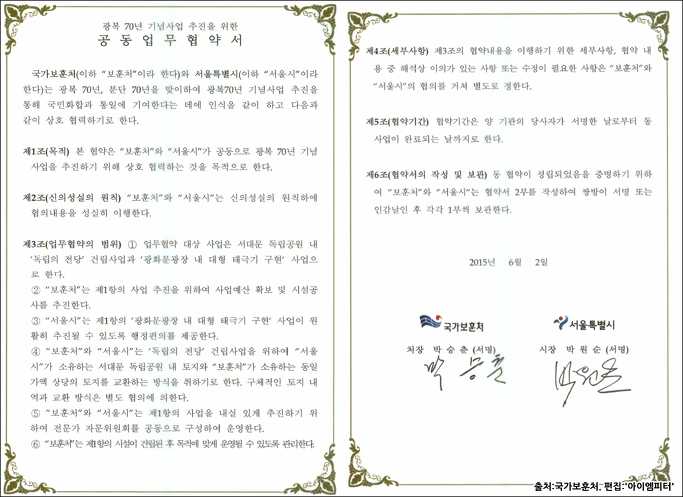 광복 70년 기념사업 추진을 위한
공 동 업 무 협 약 서
국가보훈처(이하 "보훈처"이라 한다)와 서울특별시(이하 "서울시"이라
한다)는 광복 70년, 분단 70년을 맞이하여 광복70년 기념사업 추진을
통해 국민화합과 통일에 기여한다는 데에 인식을 같이 하고 다음과
같이 상호 협력하기로 한다.
제1조(목적) 본 협약은 "보훈처"와 "서울시"가 공동으로 광복 70년 기념
사업을 추진하기 위해 상호 협력하는 것을 목적으로 한다.
제2조(신의성실의 원칙) "보훈처"와 "서울시"는 신의성실의 원칙하에
협의내용을 성실히 이행한다.
제3조(업무협약의 범위) ① 업무협약 대상 사업은 서대문 독립공원 내
'독립의 전당' 건립사업과 '광화문광장 내 대형 태극기 구현' 사업으
로 한다.
② "보훈처"는 제1항의 사업 추진을 위하여 사업예산 확보 및 시설공
사를 추진한다.
③ "서울시"는 제1항의 '광화문광장 내 대형 태극기 구현' 사업이 원
활히 추진될 수 있도록 행정편의를 제공한다.
④ "보훈처"와 "서울시"는 '독립의 전당' 건립사업을 위하여 "서울
시"가 소유하는 서대문 독립공원 내 토지와 "보훈처"가 소유하는 동일
가액 상당의 토지를 교환하는 방식을 취하기로 한다. 구체적인 토지 내
역과 교환 방식은 별도 협의에 의한다.
⑤ "보훈처"와 "서울시"는 제1항의 사업을 내실 있게 추진하기 위
하여 전문가 자문위원회를 공동으로 구성하여 운영한다.
⑥ "보훈처"는 제1항의 시설이 건립된 후 목적에 맞게 운영될 수 있도록 관리한다.
제4조(세부사항) 제3조의 협약내용을 이행하기 위한 세부사항, 협약 내
용 중 해석상 이의가 있는 사항 또는 수정이 필요한 사항은 "보훈처"와
"서울시"의 협의를 거쳐 별도로 정한다.
제5조(협약기간) 협약기간은 양 기관의 당사자가 서명한 날로부터 동
사업이 완료되는 날까지로 한다.
제6조(협약서의 작성 및 보관) 동 협약이 성립되었음을 증명하기 위하
여 "보훈처"와 "서울시"는 협약서 2부를 작성하여 쌍방이 서명 또는
인감날인 후 각각 1부씩 보관한다.
2015년 6월 2일
국가보훈처 서울특별시
처장 박 승 춘 (서명) 시장 박 원 순 (서명)
박승춘 박원순
출처:국가보훈처, 편집:'아이엠피터'